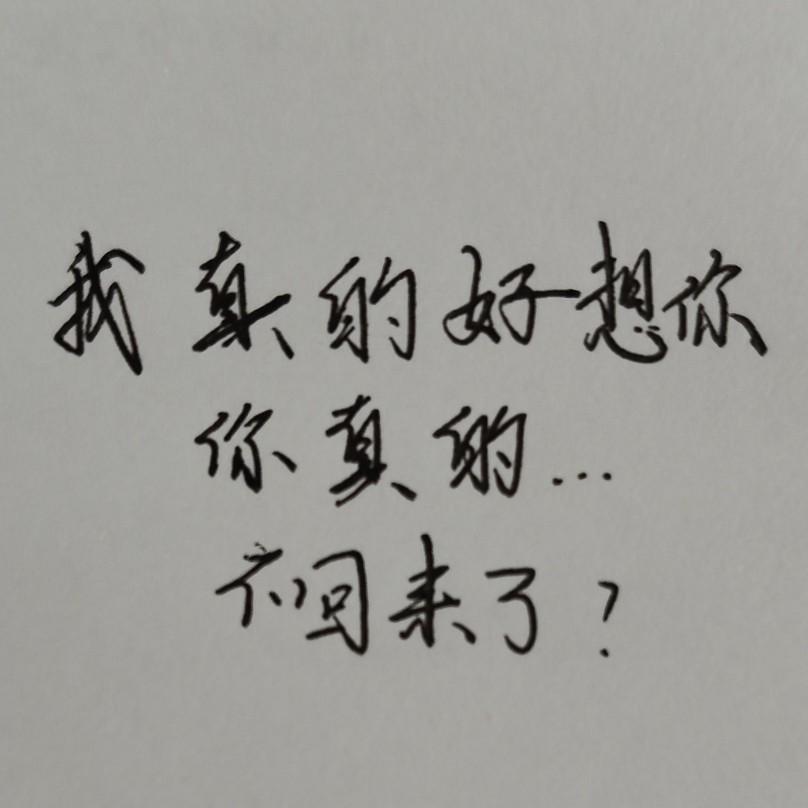 我真的好想你
你真的...
不回来了?